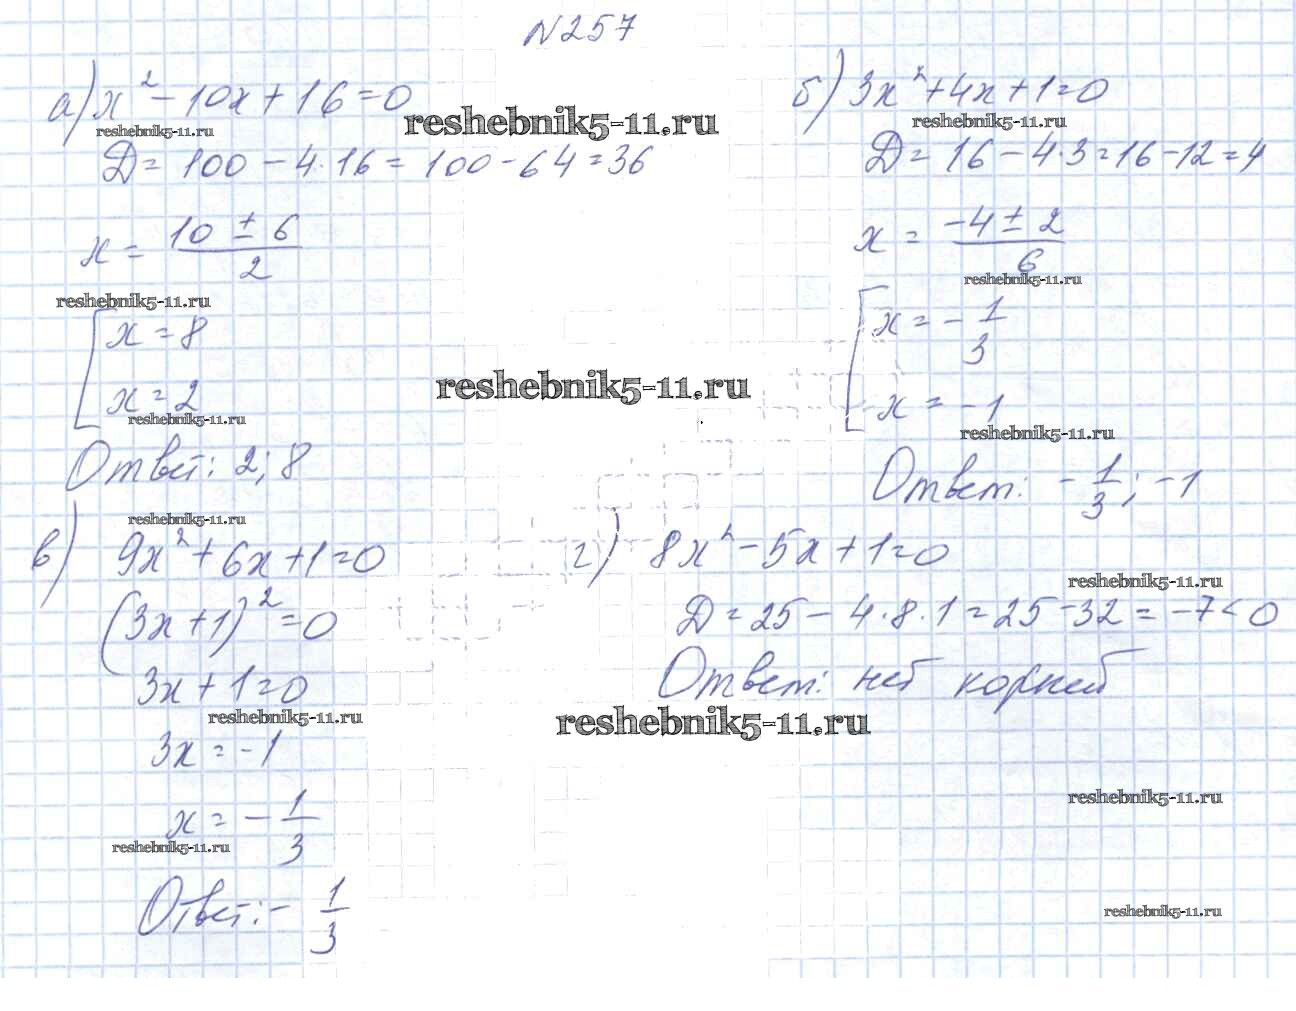 N257
а) x² - 10x + 16 = 0
reshebnik5-11.ru
reshebnik5-11.ru
Д = 100 - 4·16 = 100 - 64 = 36
x = (10 ± 6)/2
reshebnik5-11.ru
[ x = 8
x = 2
reshebnik5-11.ru
Ответ: 2; 8
б) 3x² + 4x + 1 = 0
reshebnik5-11.ru
Д = 16 - 4·3 = 16 - 12 = 4
x = (-4 ± 2)/6
reshebnik5-11.ru
[ x = -1/3
x = -1
reshebnik5-11.ru
reshebnik5-11.ru
Ответ: -1/3; -1
reshebnik5-11.ru
в) 9x² + 6x + 1 = 0
(3x + 1)² = 0
3x + 1 = 0
reshebnik5-11.ru
3x = -1
x = -1/3
reshebnik5-11.ru
Ответ: -1/3
г) 8x² - 5x + 1 = 0
reshebnik5-11.ru
Д = 25 - 4·8·1 = 25 - 32 = -7 < 0
Ответ: нет корней
reshebnik5-11.ru
reshebnik5-11.ru
reshebnik5-11.ru